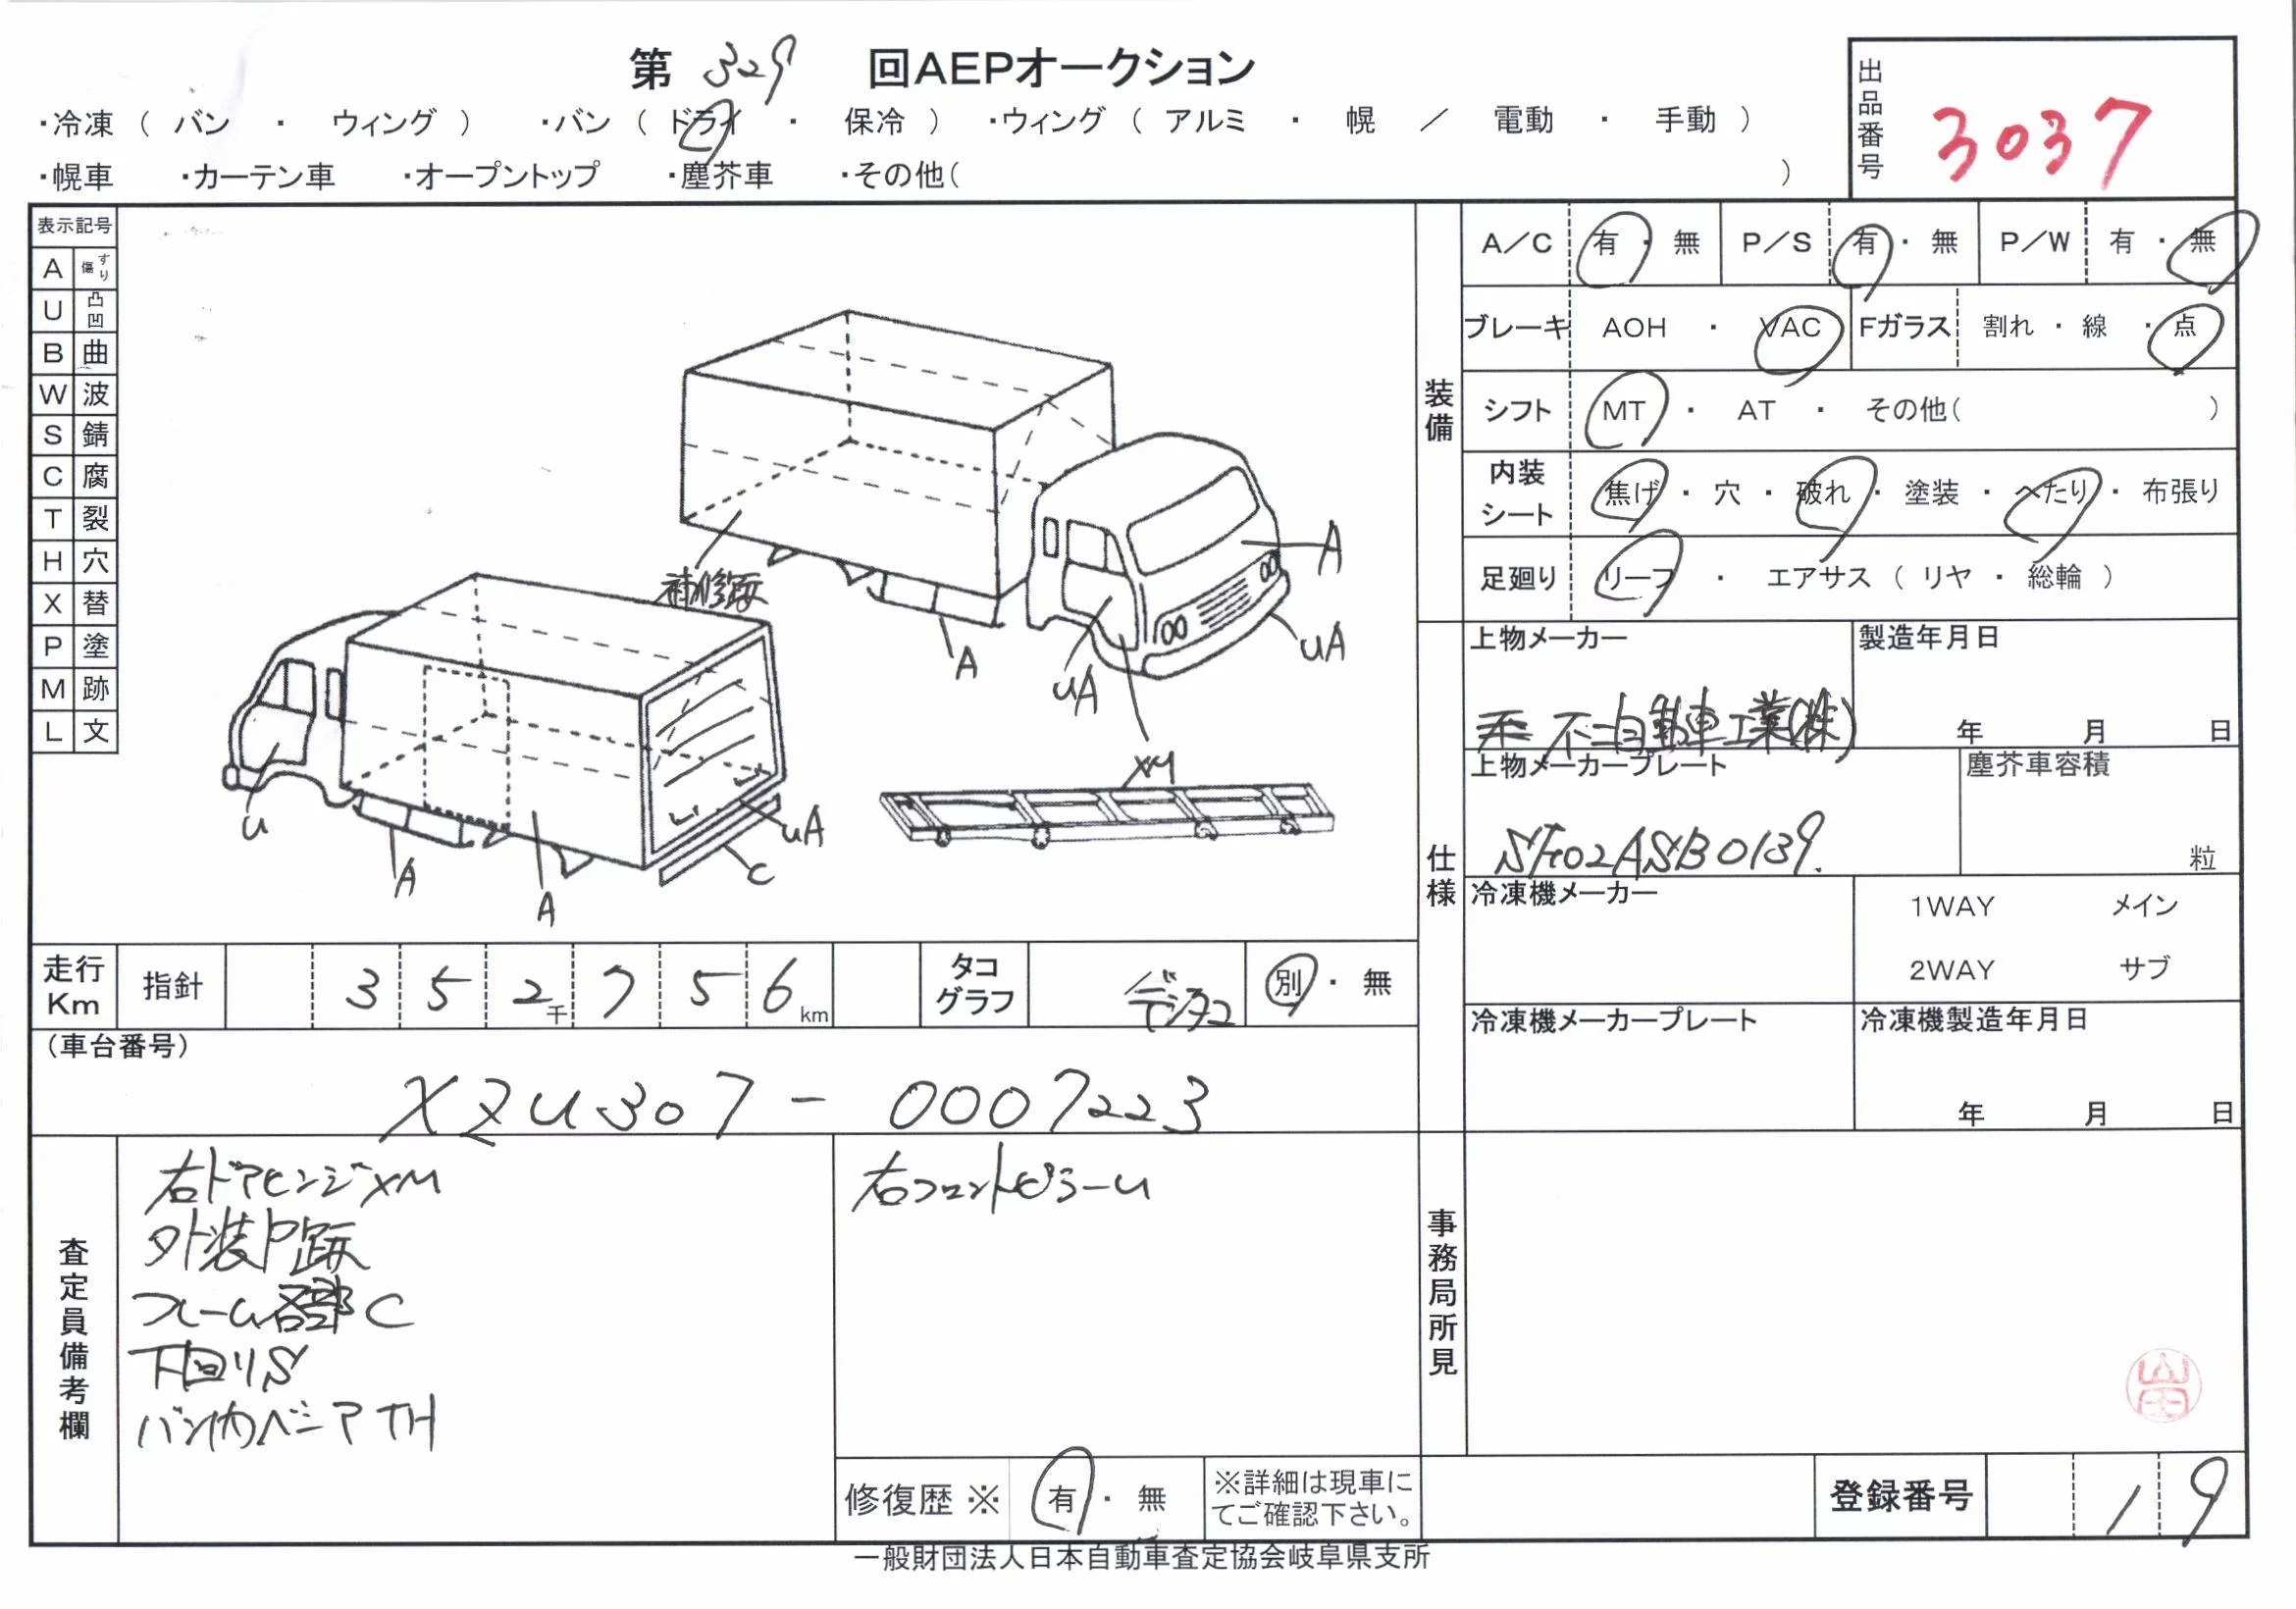 第 329 回AEPオークション
・冷凍（ バン ・ ウィング ） ・バン（ ドライ ・ 保冷 ） ・ウィング（ アルミ ・ 幌 ／ 電動 ・ 手動 ）
・幌車 ・カーテン車 ・オープントップ ・塵芥車 ・その他（ ）
出品番号 3037
表示記号
A すり傷
U 凸凹
B 曲
W 波
S 錆
C 腐
T 裂
H 穴
X 替
P 塗
M 跡
L 文
A
補修跡
A
uA
uA
XM
u
A
A
uA
C
装備
A／C 有 ・ 無 P／S 有 ・ 無 P／W 有 ・ 無
ブレーキ AOH ・ VAC Fガラス 割れ ・ 線 ・ 点
シフト MT ・ AT ・ その他（ ）
内装シート 焦げ ・ 穴 ・ 破れ ・ 塗装 ・ へたり ・ 布張り
足廻り リーフ ・ エアサス（ リヤ ・ 総輪 ）
仕様
上物メーカー
不二自動車工業(株)
製造年月日
年 月 日
上物メーカープレート
SF02ASB0139.
塵芥車容積
粒
冷凍機メーカー
1WAY メイン
2WAY サブ
冷凍機メーカープレート
冷凍機製造年月日
年 月 日
走行Km 指針 3 5 2千 7 5 6km タコグラフ デジタコ 別 ・ 無
（車台番号）
XZU307-0007223
査定員備考欄
右ドアヒンジXM
外装P跡
フレーム各部C
下回りS
バン内ベニアTH
右フロントピラーu
修復歴※ 有 ・ 無
※詳細は現車にてご確認下さい。
事務局所見
登録番号 19
一般財団法人日本自動車査定協会岐阜県支所